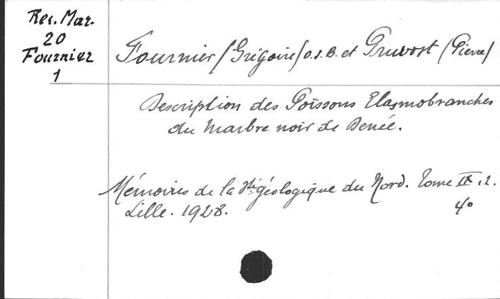 Rec. Mar.
20
Fournier
1
Fournier (Grégoire) O.S.B. et Pruvost (Pierre)
Description des Poissons Elasmobranches
du marbre noir de Denée.
Mémoires de la Sté géologique du Nord. Tome IX. 2.
Lille. 1928.
4°